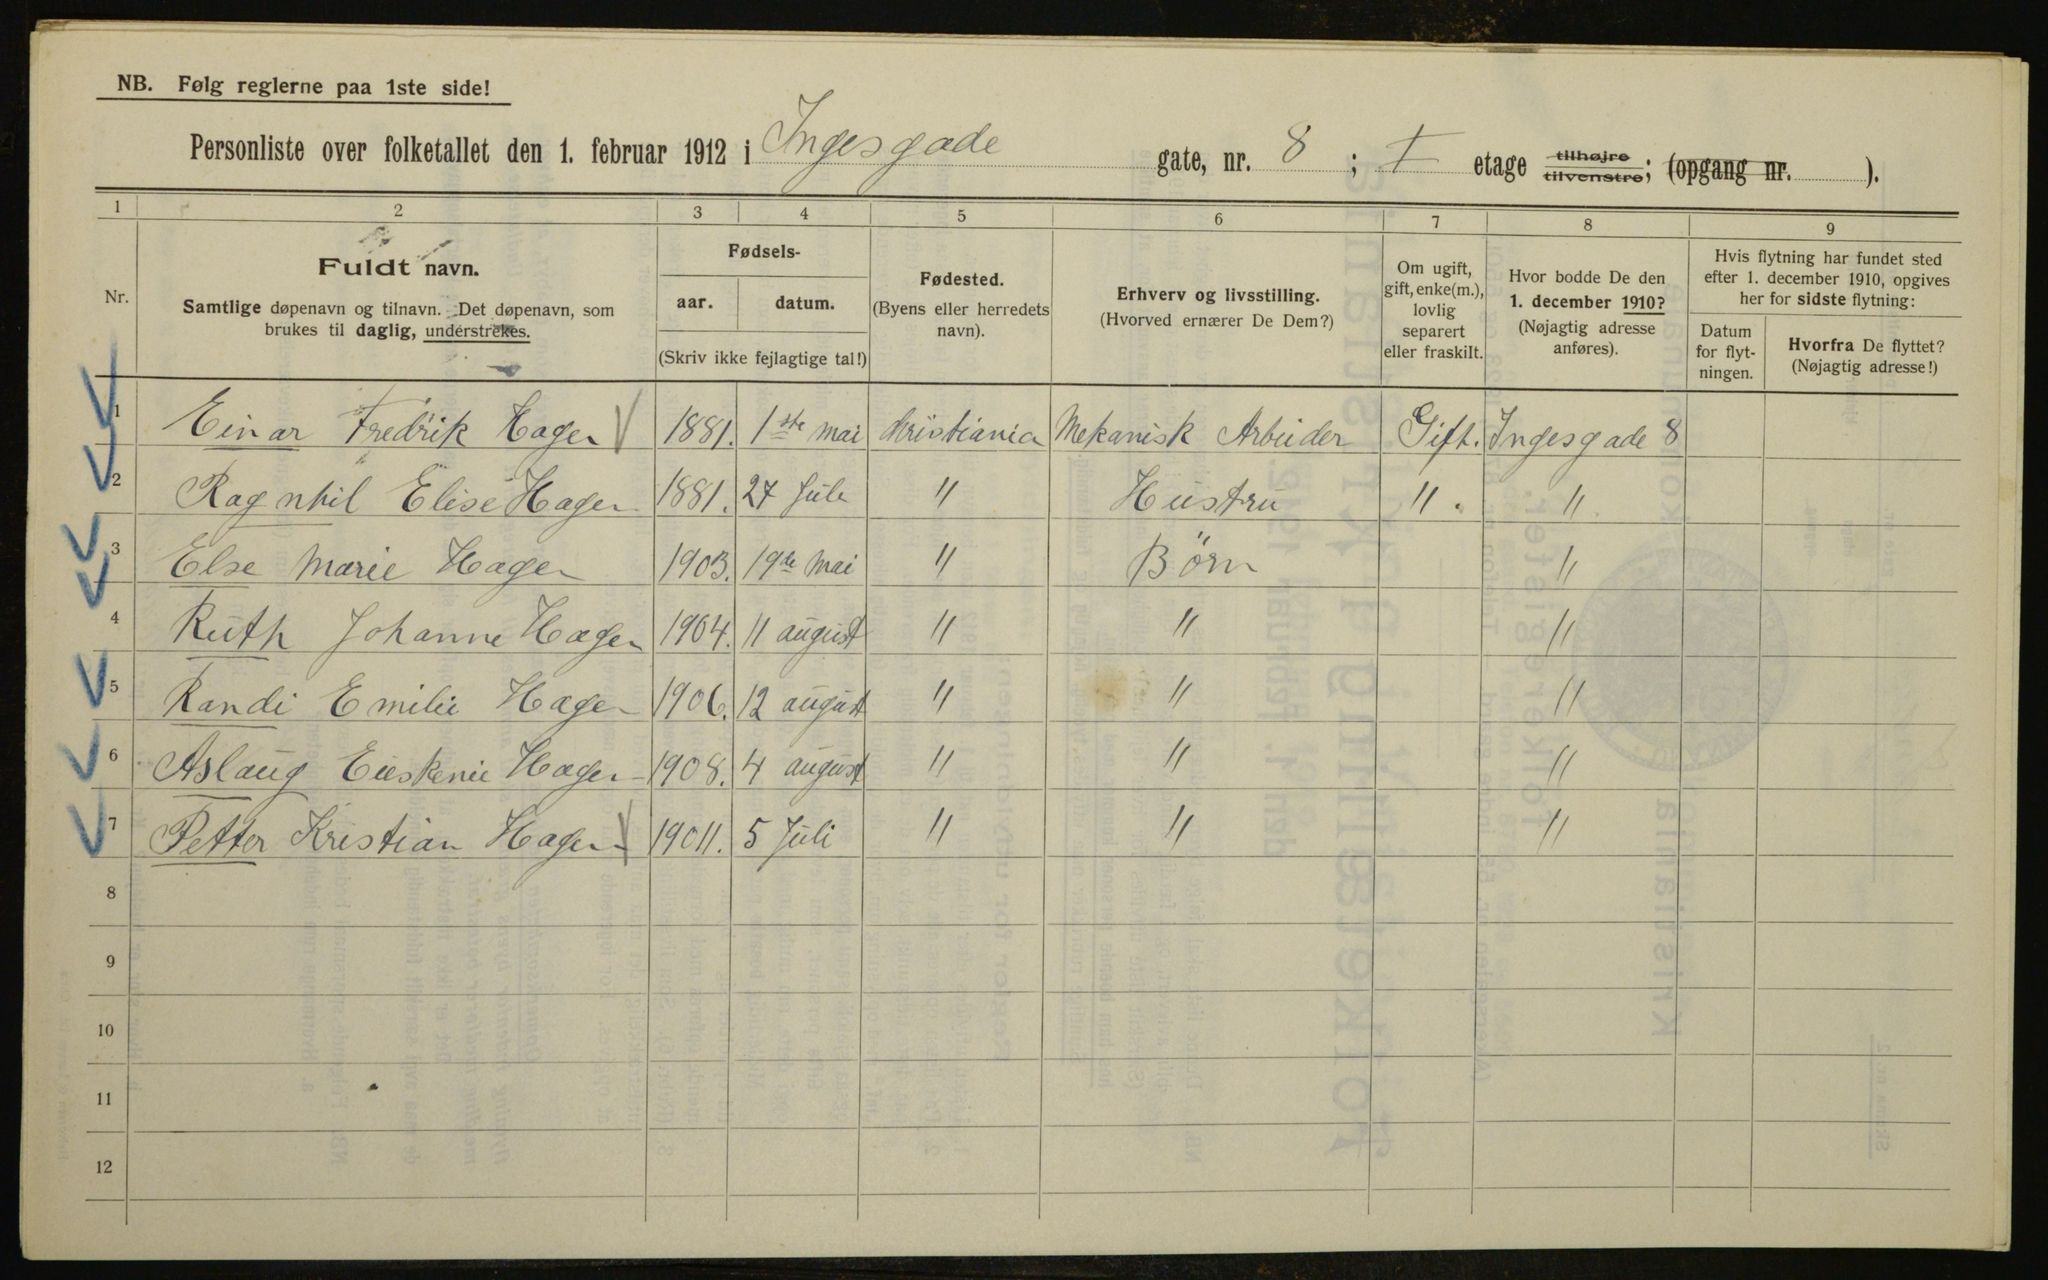 NB. Følg reglerne paa 1ste side!
Personliste over folketallet den 1. februar 1912 i Ingesgade gate, nr. 8 ; I etage tilhøjre tilvenstre; (opgang nr. ).
1 2 3 4 5 6 7 8 9
Nr.
Fuldt navn.
Samtlige døpenavn og tilnavn. Det døpenavn, som
brukes til daglig, understrekes.
Fødsels-
aar. datum.
(Skriv ikke fejlagtige tal!)
Fødested.
(Byens eller herredets
navn).
Erhverv og livsstilling.
(Hvorved ernærer De Dem?)
Om ugift,
gift, enke(m.),
lovlig
separert
eller fraskilt.
Hvor bodde De den
1. december 1910?
(Nøjagtig adresse
anføres).
Hvis flytning har fundet sted
efter 1. december 1910, opgives
her for sidste flytning:
Datum
for flyt-
ningen.
Hvorfra De flyttet?
(Nøjagtig adresse!)
1 Einar Fredrik Hagen 1881. 1ste mai Christiania Mekanisk Arbeider Gift. Ingesgade 8
2 Ragnhil Elise Hagen 1881. 27 Juli " Hustru " . "
3 Else Marie Hagen 1903. 19de mai " Børn "
4 Ruth Johanne Hagen 1904. 11 august " " "
5 Randi Emilie Hagen 1906. 12 august " " "
6 Aslaug Euskenie Hagen 1908. 4 august " " "
7 Petter Kristian Hagen 19011. 5 Juli " " "
8
9
10
11
12